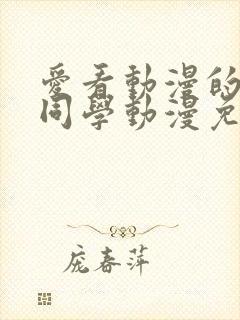 愛看動漫的
同學動漫免
庞春萍